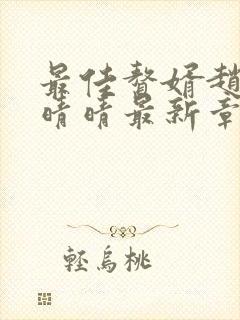 最佳赘婿赵
晴晴最新章
轻乌桃